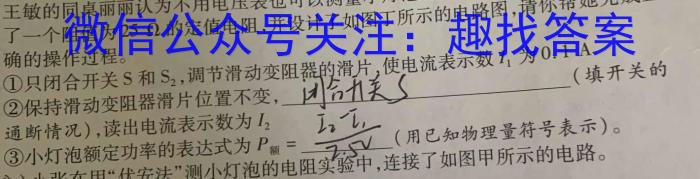 王敏的同桌丽丽认为不用电压表也可以测量小
了一个阻值为25Ω的定值电阻,并设计了如图丁所示的电路图,请你帮她完成
微信公众号关注：趣找答案
确的操作过程。
①只闭合开关S和S₂,调节滑动变阻器的滑片,使电流表示数I₁为0.1 A。
②保持滑动变阻器滑片位置不变, 闭合开关S (填开关的
通断情况),读出电流表示数为I₂
③小灯泡额定功率的表达式为P额= I₂-I₁ / 2.5V (用已知物理量符号表示)。
张在用“伏安法”测小灯泡的电阻实验中,连接了如图甲所示的电路。